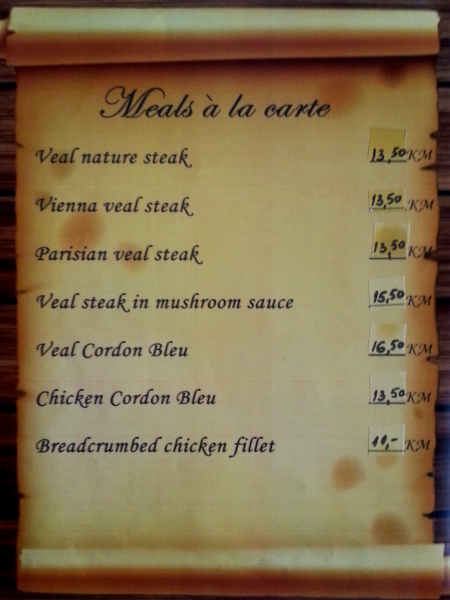 Meals à la carte
Veal nature steak 13,50 KM
Vienna veal steak 13,50 KM
Parisian veal steak 13,50 KM
Veal steak in mushroom sauce 15,50 KM
Veal Cordon Bleu 16,50 KM
Chicken Cordon Bleu 13,50 KM
Breadcrumbed chicken fillet 11,- KM